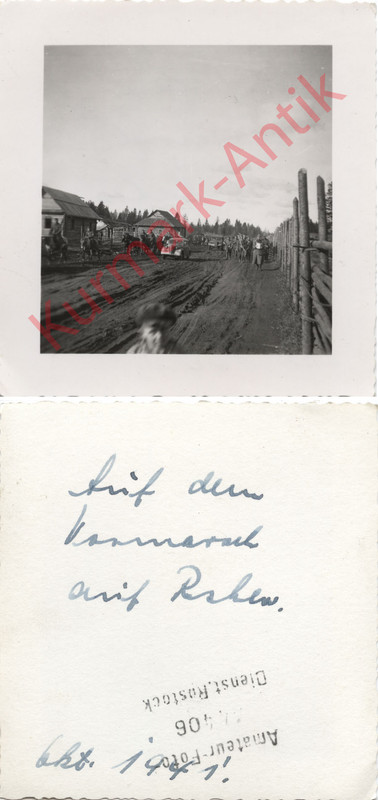 Kurmark-Antik
Auf dem
Vormarsch
auf Rshew.
Amateur-Foto
406
Dienst, Rostock
Okt. 1941!